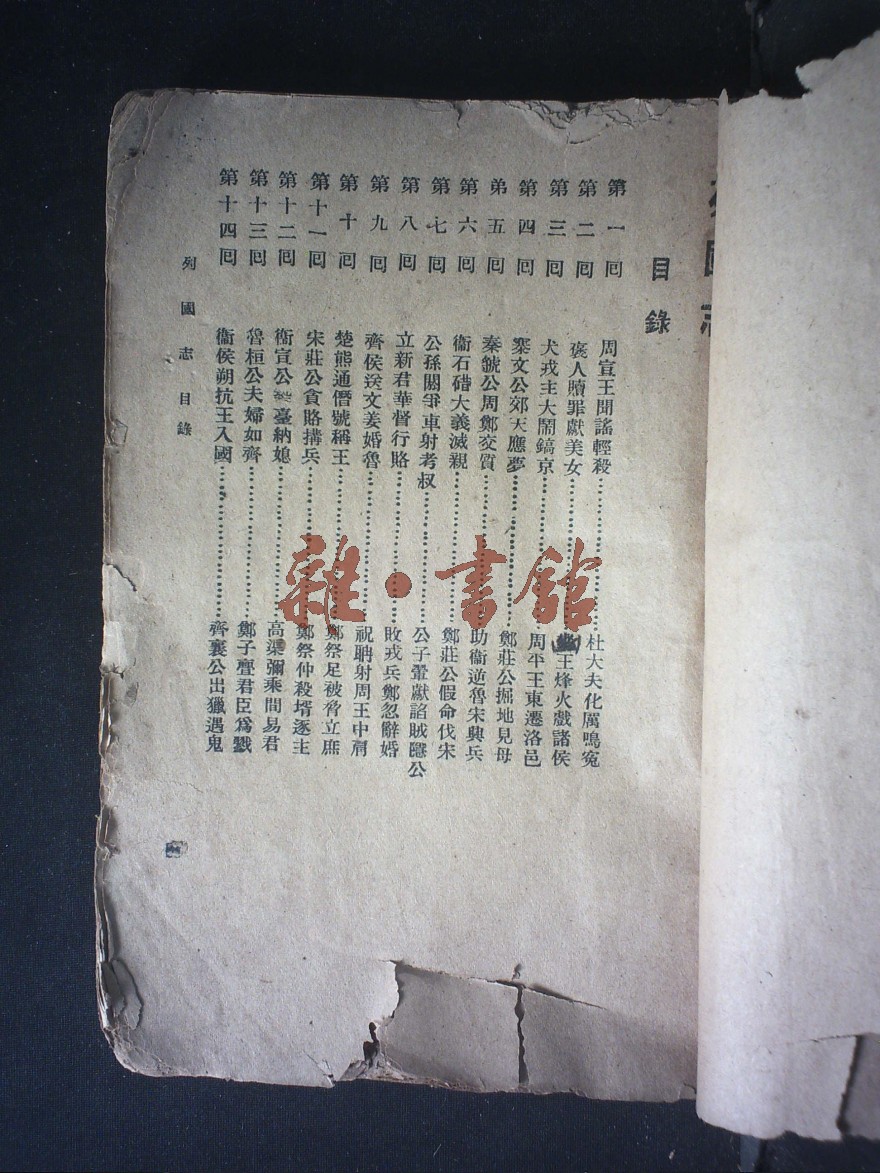 國
目錄
第一囘 周宣王聞謠輕殺……杜大夫化厲鳴寃
第二囘 褒人贖罪獻美女……王烽火戲諸侯
第三囘 犬戎主大鬧鎬京……周平王東遷洛邑
第四囘 文公郊天應夢……鄭莊公掘地見母
弟五囘 秦虢公周鄭交質……助衞逆魯宋興兵
第六囘 衞石碏大義滅親……鄭莊公假命伐宋
第七囘 公孫閼爭車射考叔……公子翬獻諂賊隱公
第八囘 立新君華督行賂……敗戎兵鄭忽辭婚
第九囘 齊侯送文姜婚魯……祝聃射周王中肩
第十囘 楚熊通僭號稱王……鄭祭足被脅立庶
第十一囘 宋莊公貪賂搆兵……鄭祭仲殺壻逐主
第十二囘 衞宣公臺納媳……高渠彌乘間易君
第十三囘 魯桓公夫婦如齊……鄭子亹君臣爲戮
第十四囘 衞侯朔抗王入國……齊襄公出獵遇鬼
列國志 目錄
雜·書館